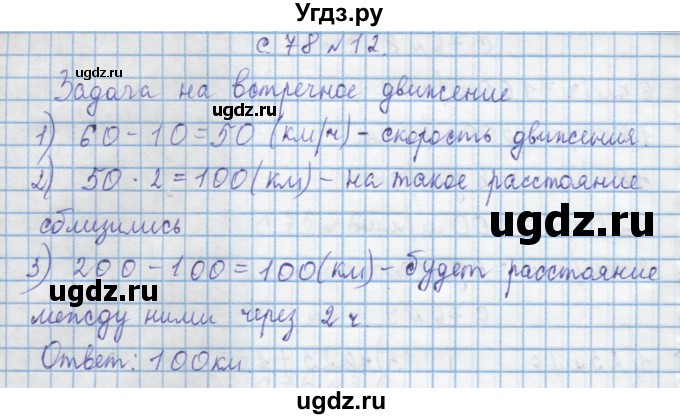 Угдз.ру
с. 78 № 12.
ugdz.ru
Задача на встречное движение
ugdz.ru
1) 60 - 10 = 50 (км/ч) - скорость движения.
ugdz.ru
2) 50 · 2 = 100 (км) - на такое расстояние
сблизились
ugdz.ru
3) 200 - 100 = 100 (км) - будет расстояние
ugdz.ru
между ними через 2 ч.
ugdz.ru
Ответ: 100 км.
ugdz.ru